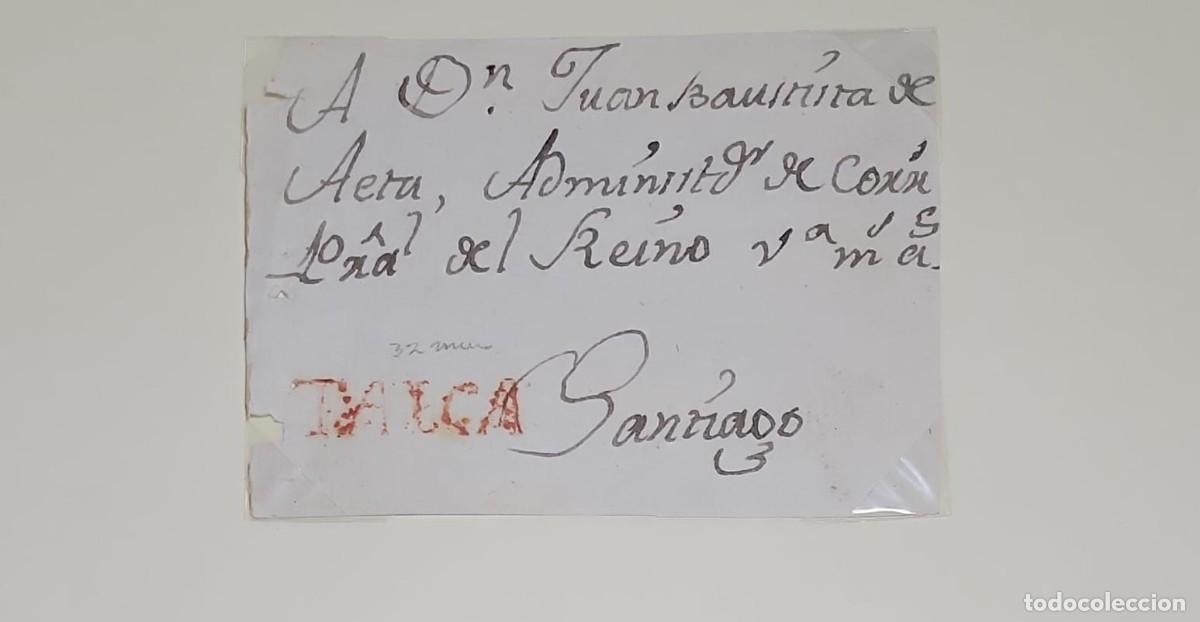 A Dn. Juan Bautista de
Aeta, Administdr de Corrs
del Reino va ms as
32 mm
TALCA Santiago
todocoleccion